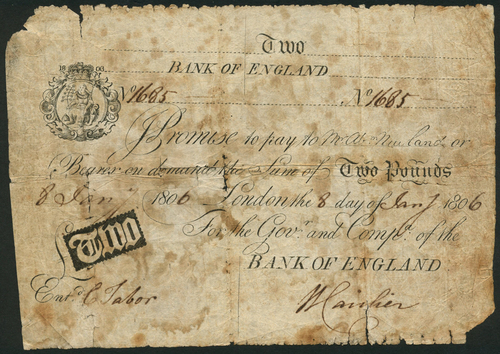 Two
BANK OF ENGLAND
No 1685 No 1685
I Promise to pay to Mr Abm Newland or
Bearer on demand the Sum of Two Pounds
8 Jany 1806 London the 8 day of Jany 1806
For the Govr. and Compa. of the
BANK OF ENGLAND
£ Two
Entd. C Tabor